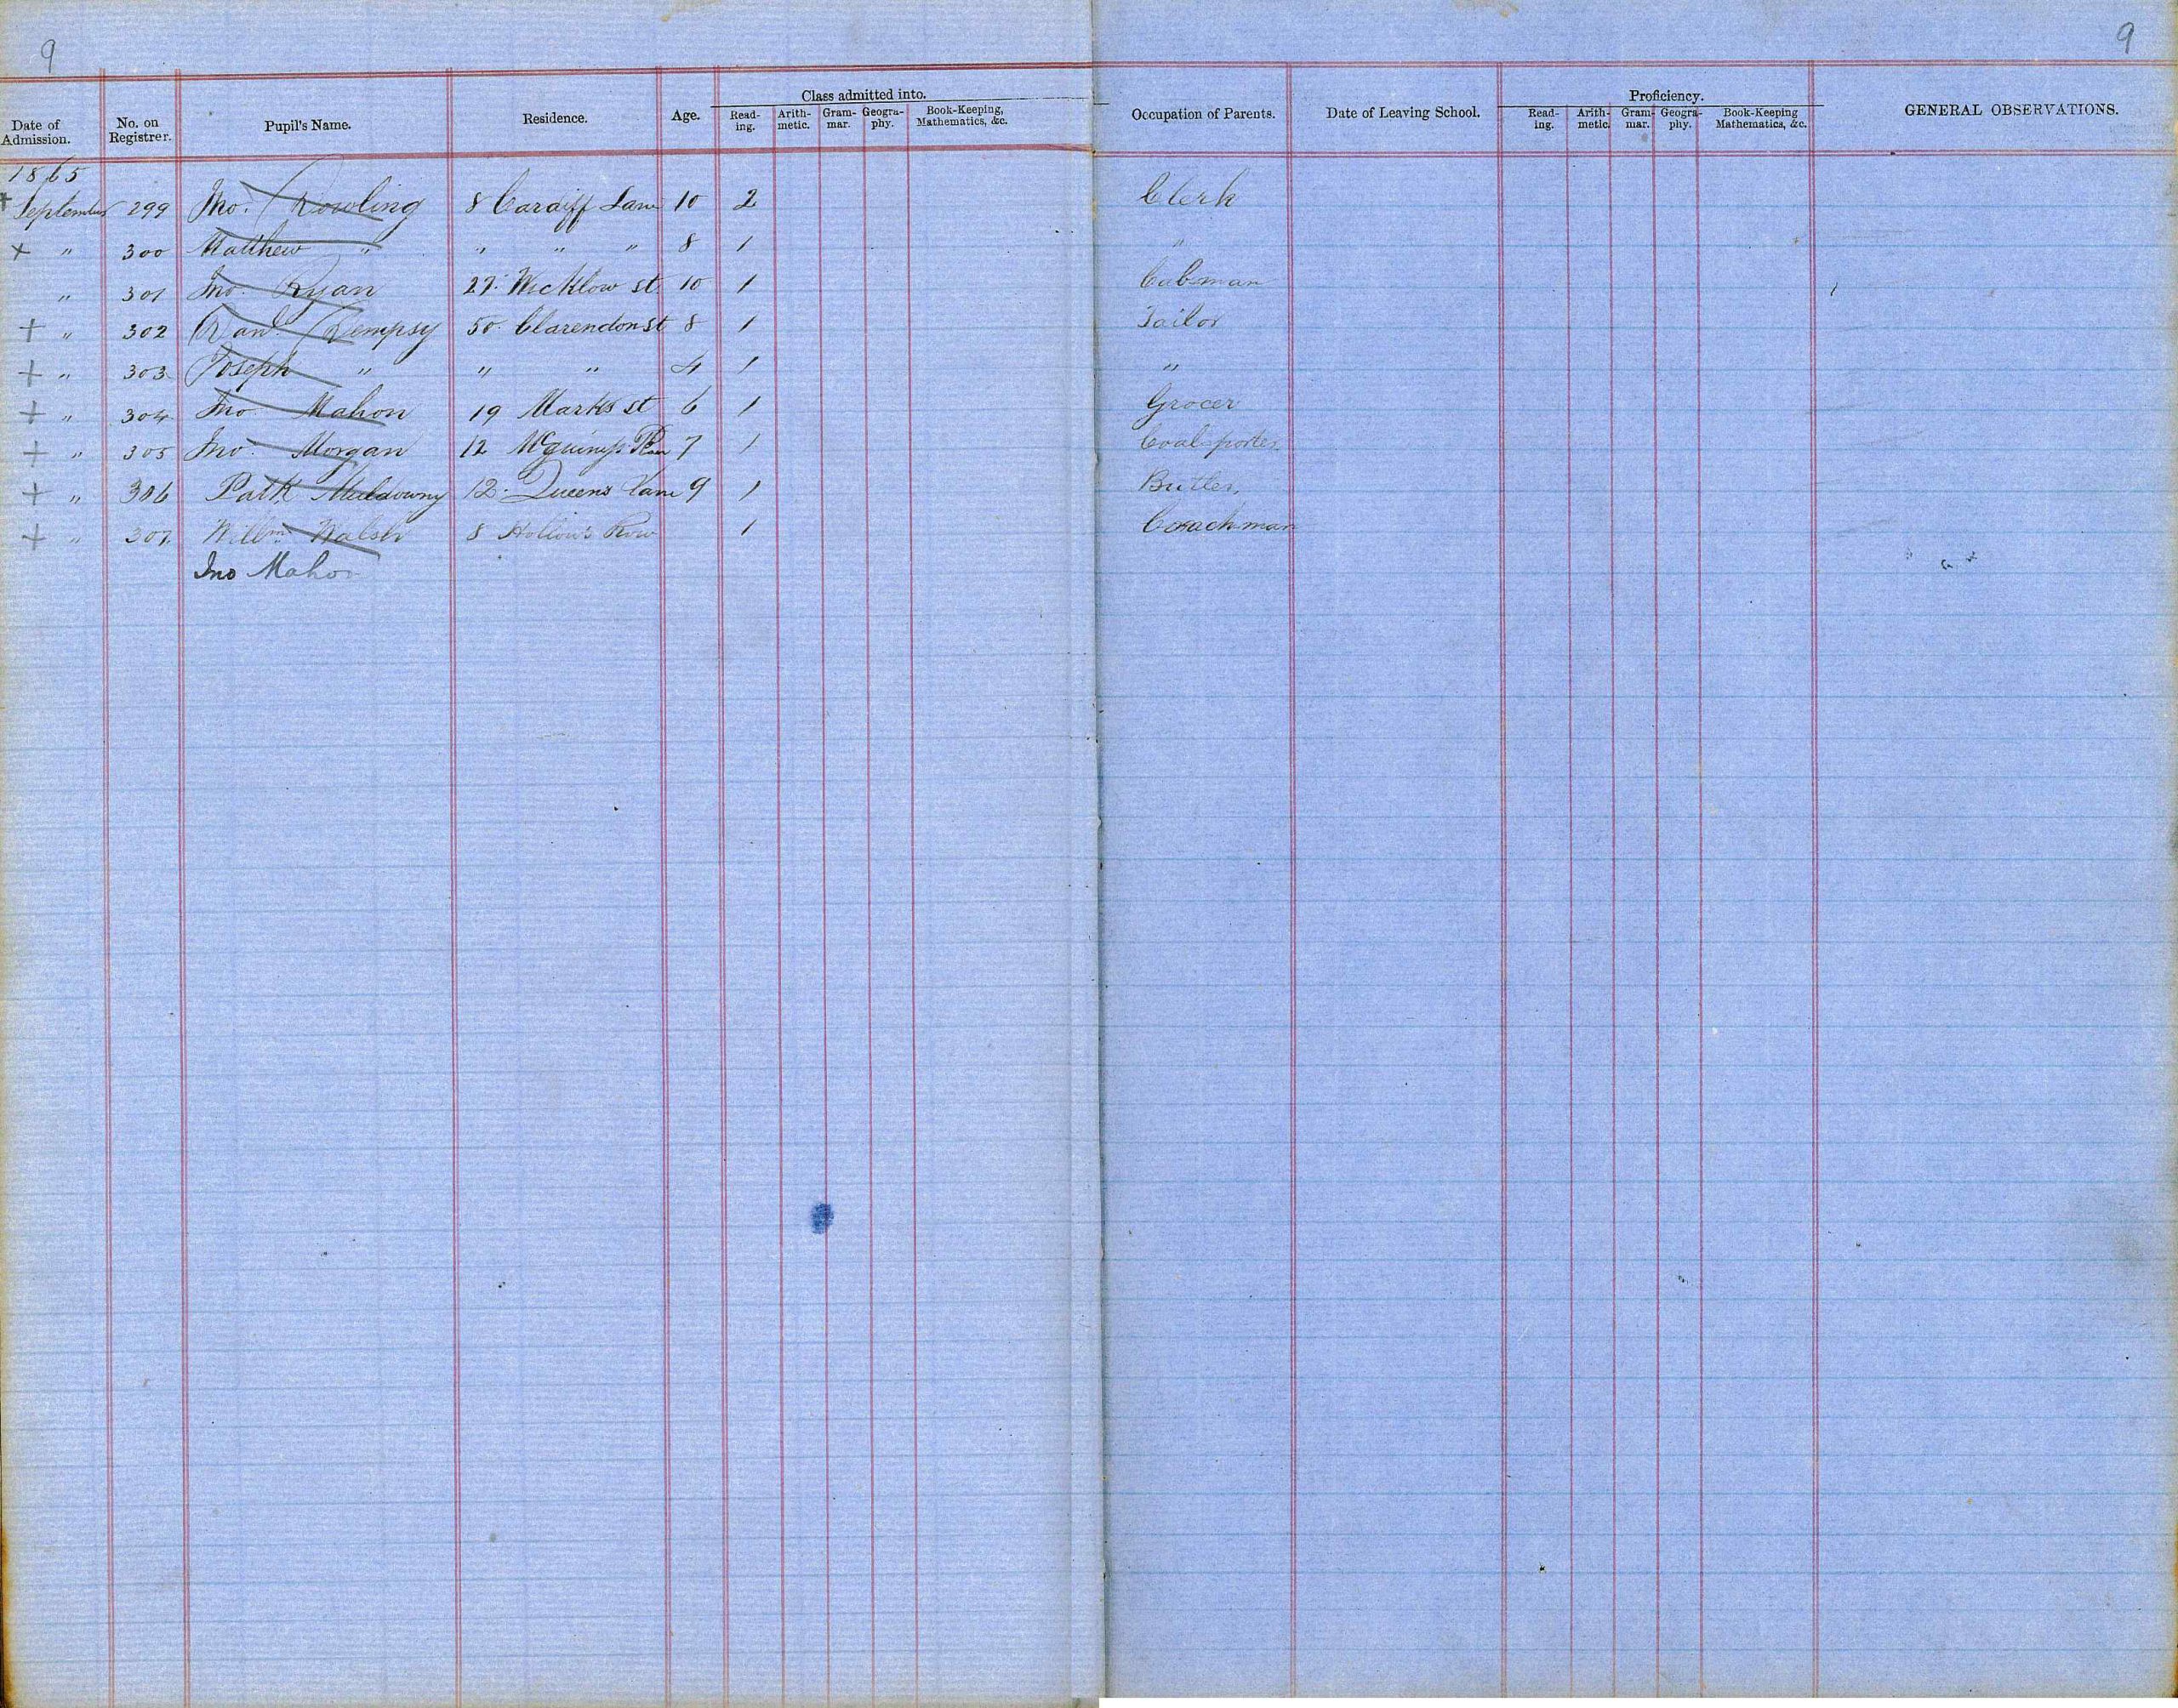 9 9
Class admitted into. Proficiency.
Date of Admission. No. on Registrer. Pupil's Name. Residence. Age. Read-ing. Arith-metic. Gram-mar. Geogra-phy. Book-Keeping, Mathematics, &c. Occupation of Parents. Date of Leaving School. Read-ing. Arith-metic. Gram-mar. Geogra-phy. Book-Keeping Mathematics, &c. GENERAL OBSERVATIONS.
1865
+ September 299 Jno. Dowling 8 Cardiff Lane 10 2 Clerk
+ " 300 Matthew " " " " 8 1 "
" 301 Jno. Ryan 27. Wicklow st. 10 1 Cabman
+ " 302 Danl. Dempsy 50. Clarendon st 8 1 Tailor
+ " 303 Joseph " " " 4 1 "
+ " 304 Jno Mahon 19 Marks st 6 1 Grocer
+ " 305 Jno. Morgan 12 7 1 Coal-porter.
+ " 306 Patk Muldowny 12. Queens Lane 9 1 Butler.
+ " 307. Willm. Walsh 8 Row 1 Coachman
Jno Mahon